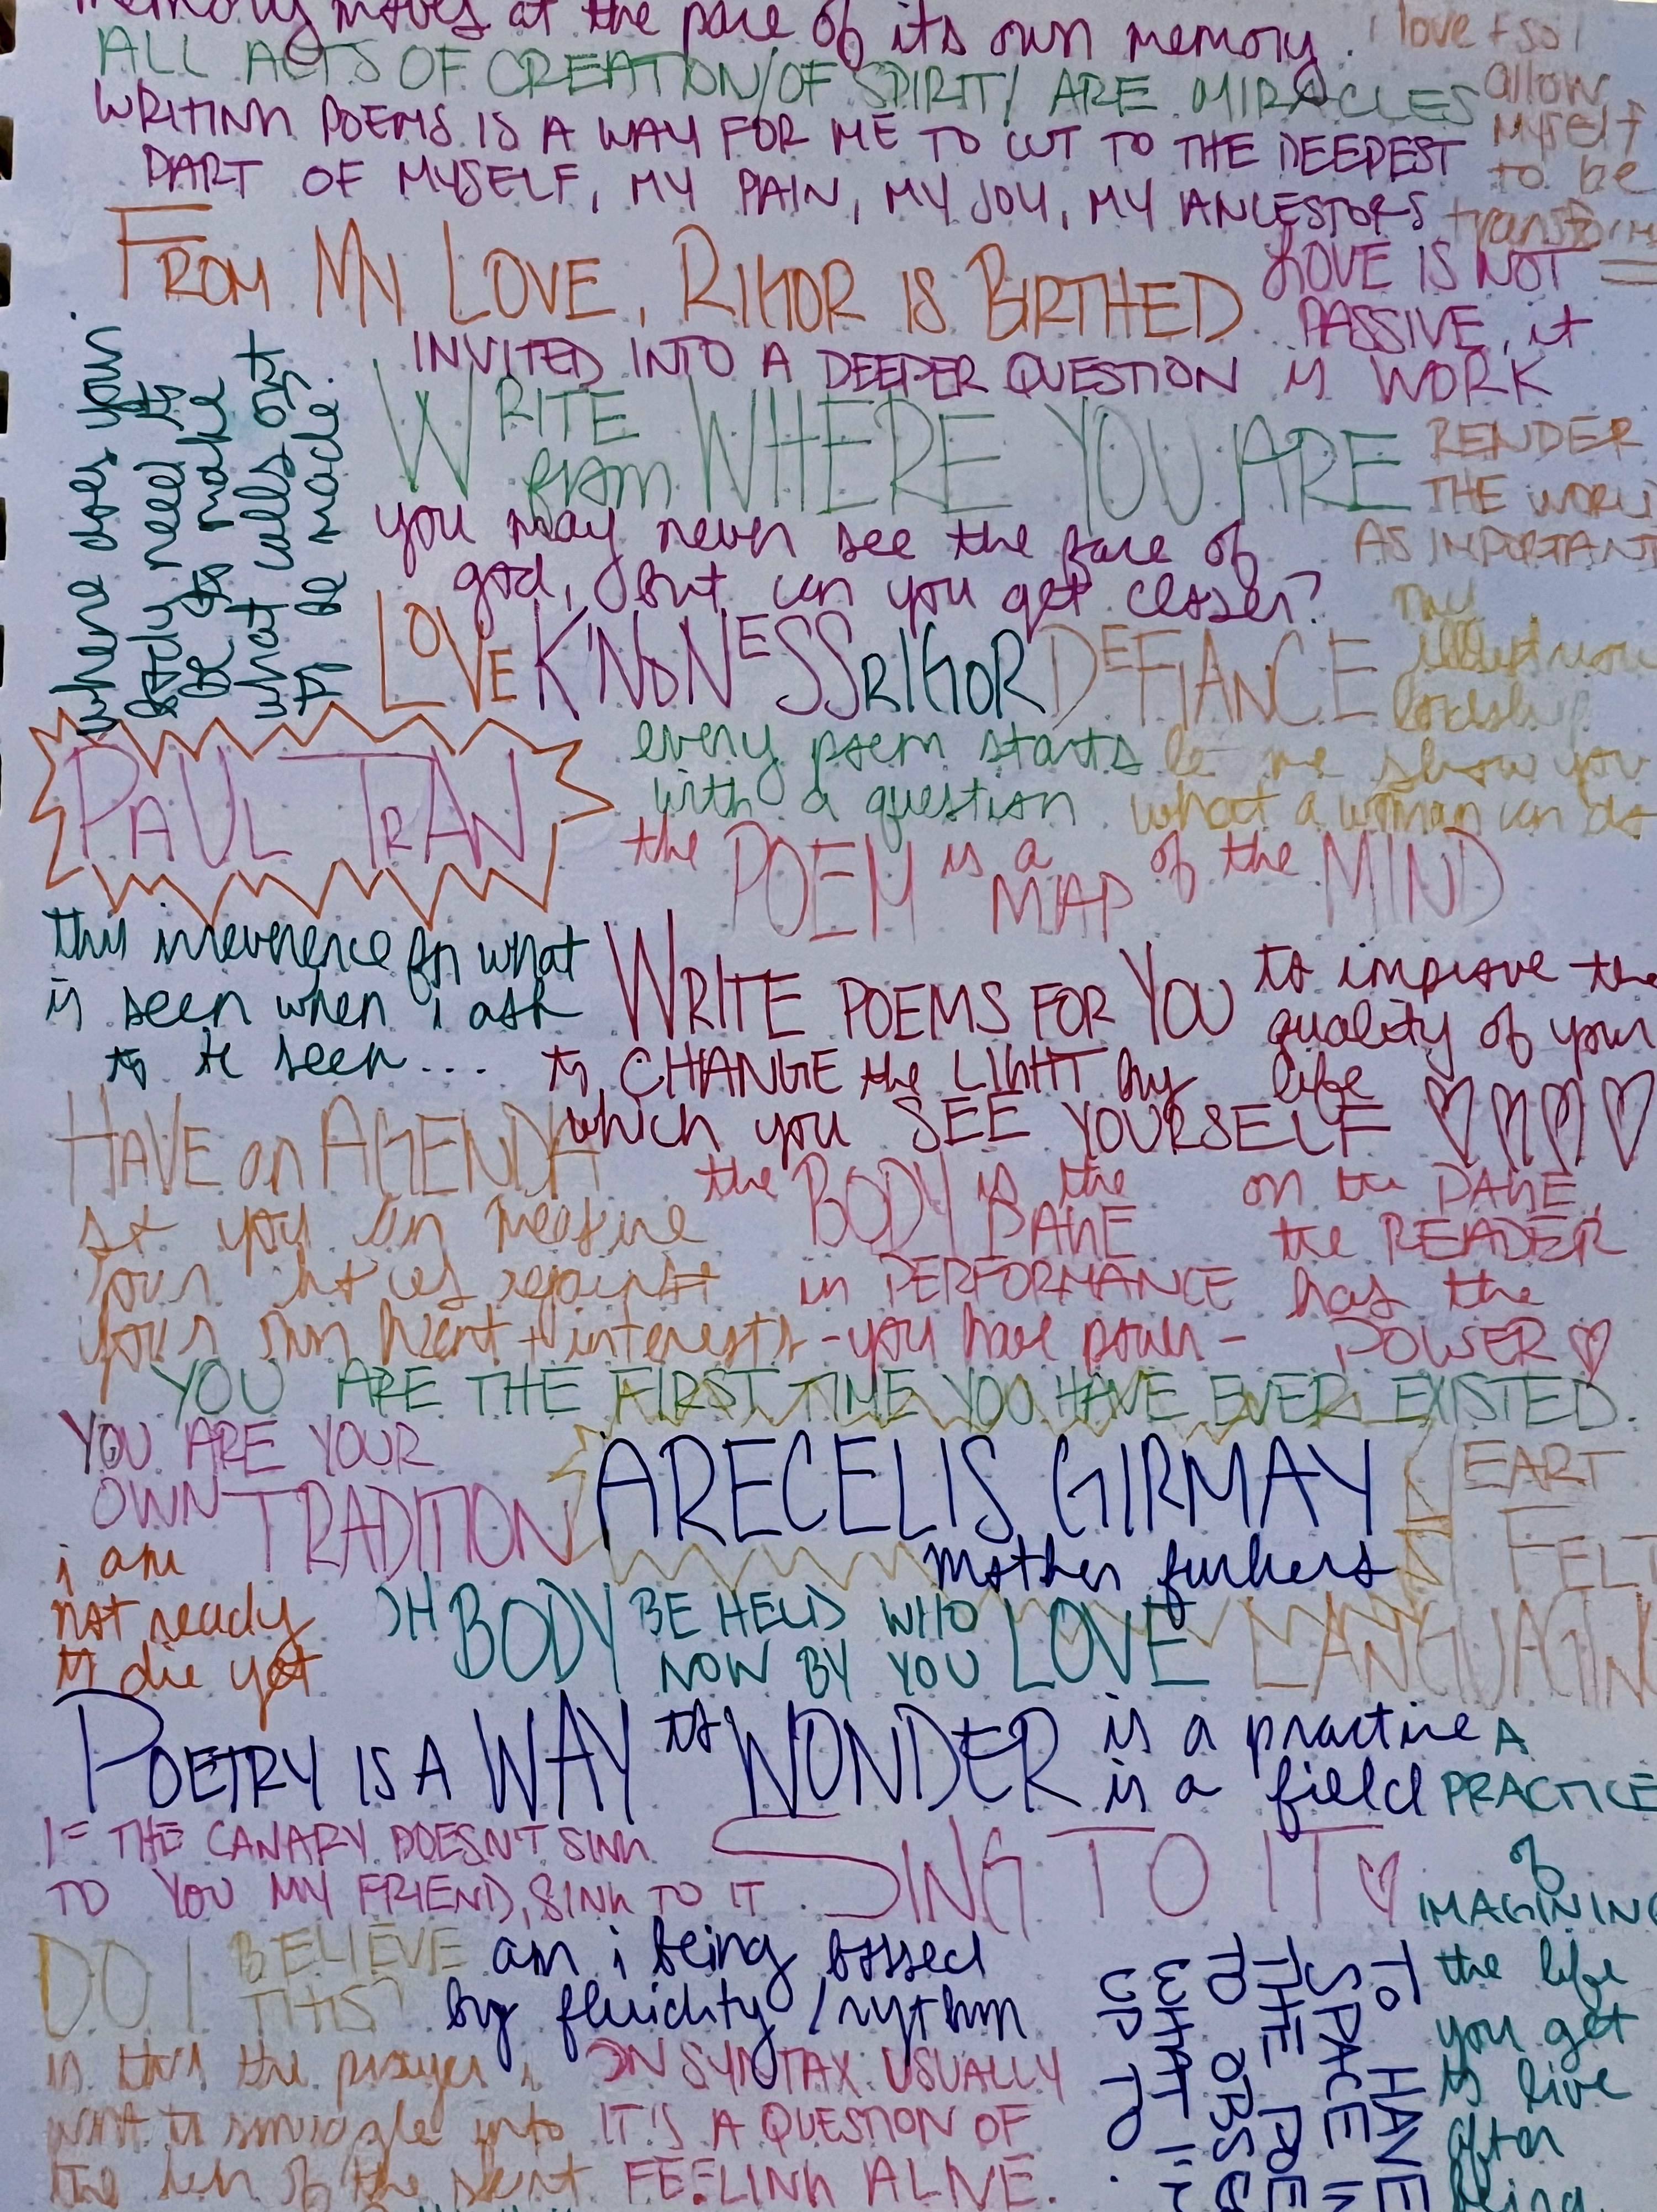 memory moves at the pace of its own memory.
i love + so i
allow
myself
to be
ALL ACTS OF CREATION/OF SPIRIT/ ARE MIRACLES
WRITING POEMS IS A WAY FOR ME TO CUT TO THE DEEPEST
PART OF MYSELF, MY PAIN, MY JOY, MY ANCESTORS
FROM MY LOVE, RIGOR IS BIRTHED
LOVE IS NOT
PASSIVE, it
is WORK
INVITED INTO A DEEPER QUESTION
where does your
body need to
be to make
what calls out
to be made?
WRITE from WHERE YOU ARE
RENDER
THE WORLD
AS IMPORTANT
you may never see the face of
god, but can you get closer?
LOVE KINDNESS RIGOR DEFIANCE
my
let me show you
what a woman can do
PAUL TRAN
every poem starts
with a question
the POEM is a MAP of the MIND
this irreverence for what
is seen when i ask
to be seen...
WRITE POEMS FOR YOU to improve the
quality of your
life
to CHANGE the LIGHT by
which you SEE YOURSELF
HAVE an AGENDA
so you can measure
your against
your own heart + interests
the BODY is the PAGE
in PERFORMANCE
-you have power-
on the PAGE,
the READER
has the
POWER
YOU ARE THE FIRST TIME YOU HAVE EVER EXISTED.
YOU ARE YOUR
OWN TRADITION
ARECELIS GIRMAY
mother fuckers
EART
FELT
LANGUAGIN
i am
not ready
to die yet
OH BODY BE HELD
NOW BY YOU WHO LOVE
POETRY IS A WAY to WONDER is a practice
is a field
A
PRACTICE
of
IMAGINING
the life
you get
to live
after
being
IF THE CANARY DOESN'T SING
TO YOU MY FRIEND, SING TO IT.
SING TO IT
DO I BELIEVE
THIS?
am i being bossed
by fluidity/rythm
is this the prayer i
want to smuggle into
the of the
ON SYNTAX: USUALLY
IT'S A QUESTION OF
FEELING ALIVE.
TO HAVE
SPACE
THE
TO
WHAT
UP TO.